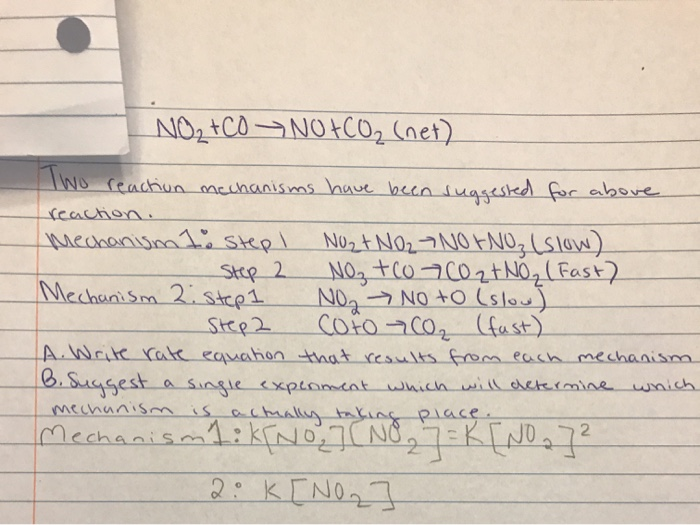 NO₂+CO→NO+CO₂ (net)
Two reaction mechanisms have been suggested for above
reaction.
Mechanism 1: Step 1 NO₂+NO₂→NO+NO₃ (slow)
Step 2 NO₃+CO→CO₂+NO₂ (Fast)
Mechanism 2: step1 NO₂→NO+O (slow)
Step2 CO+O→CO₂ (fast)
A. Write rate equation that results from each mechanism
B. Suggest a single experiment which will determine which
mechanism is actually taking place.
Mechanism 1: K[NO₂][NO₂]=K[NO₂]²
2: K[NO₂]